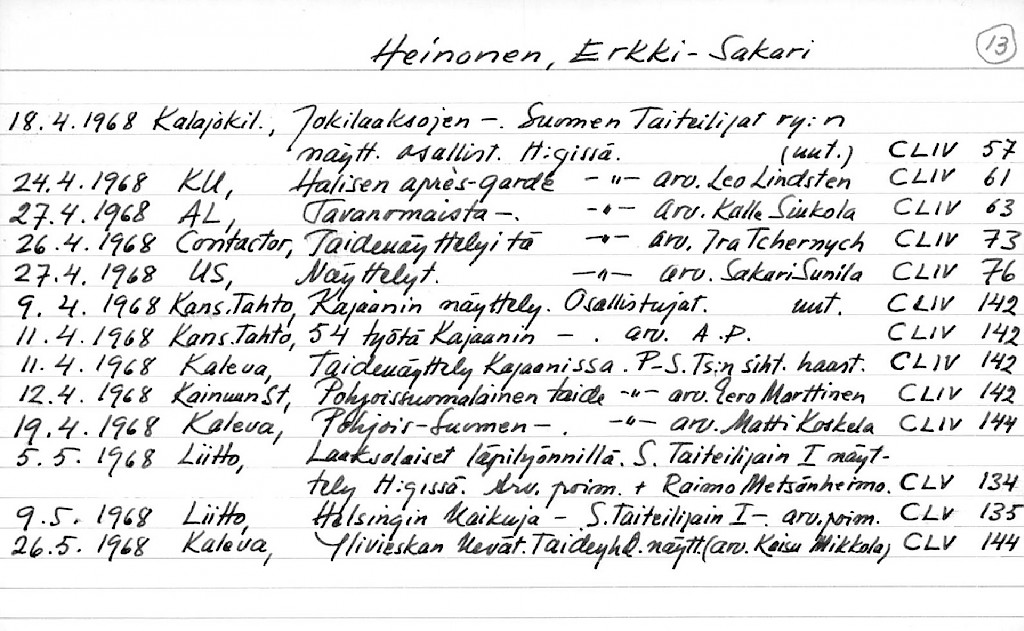 Heinonen, Erkki-Sakari 13
18.4.1968 Kalajokil., Jokilaaksojen -. Suomen Taiteilijat ry:n
näytt. osallist. H:gissä. (uut.) CLIV 57
24.4.1968 KU, Halisen après-garde -"- arv. Leo Lindsten CLIV 61
27.4.1968 AL, Tavanomaista -. -"- arv. Kalle Siukola CLIV 63
26.4.1968 Contactor, Taidenäyttelyitä -"- arv. Ira Tchernych CLIV 73
27.4.1968 US, Näyttelyt. -"- arv. Sakari Sunila CLIV 76
9.4.1968 Kans.Tahto, Kajaanin näyttely. Osallistujat. uut. CLIV 142
11.4.1968 Kans.Tahto, 54 työtä Kajaanin -. arv. A.P. CLIV 142
11.4.1968 Kaleva, Taidenäyttely Kajaanissa. P-S.Ts:n siht. haast. CLIV 142
12.4.1968 KainuunSt, Pohjoissuomalainen taide -"- arv. Eero Marttinen CLIV 142
19.4.1968 Kaleva, Pohjois-Suomen -. -"- arv. Matti Koskela CLIV 144
5.5.1968 Liitto, Laaksolaiset läpilyönnillä. S. Taiteilijain I näyt-
tely H:gissä. Arv. poim. + Raimo Metsänheimo. CLV 134
9.5.1968 Liitto, Helsingin Kaikuja - S.Taiteilijain I -. arv.poim. CLV 135
26.5.1968 Kaleva, Ylivieskan Kevät. Taideyhd. näytt. (arv. Kaisu Mikkola) CLV 144